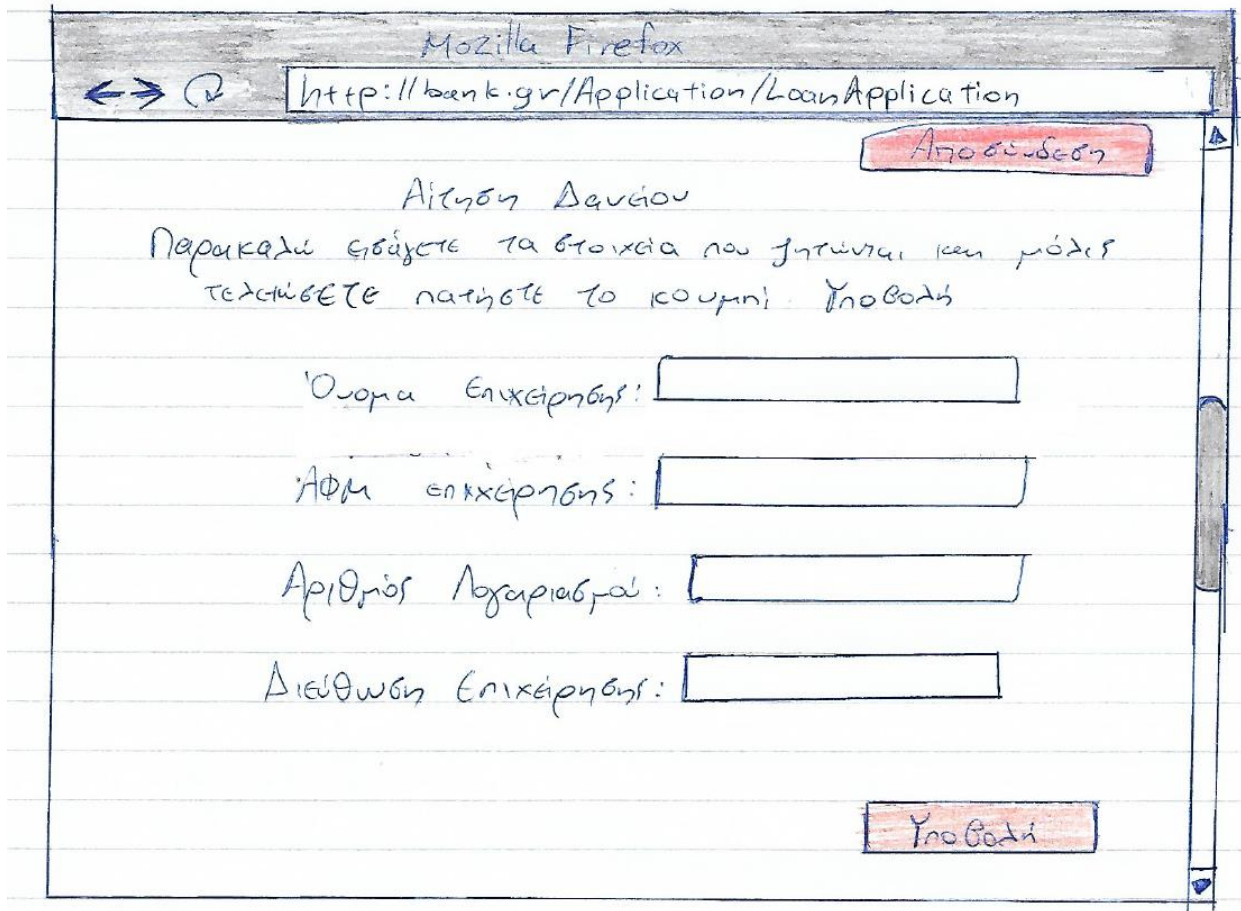 Mozilla Firefox
http://bank.gr/Application/LoanApplication
Αποσύνδεση
Αίτηση Δανείου
Παρακαλώ εισάγετε τα στοιχεία που ζητώνται και μόλις
τελειώσετε πατήστε το κουμπί Υποβολή
Όνομα Επιχείρησης:
ΑΦΜ επιχείρησης:
Αριθμός Λογαριασμού:
Διεύθυνση Επιχείρησης:
Υποβολή